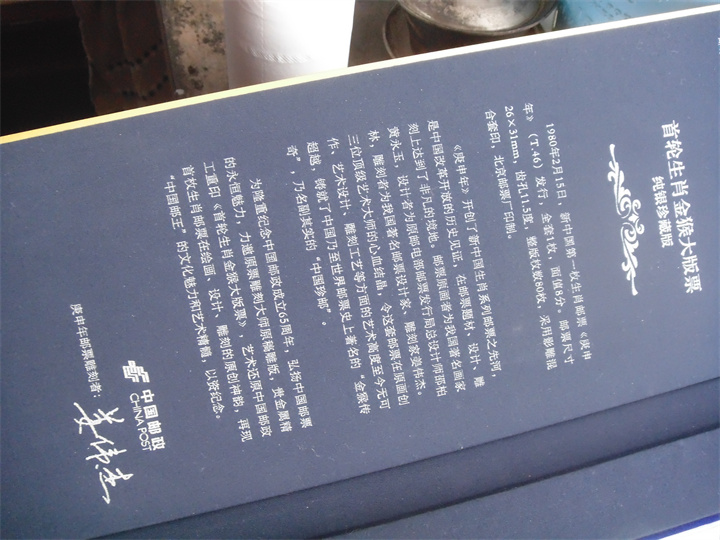 首轮生肖金猴大版票
纯银珍藏版
1980年2月15日，新中国第一枚生肖邮票《庚申
年》（T.46）发行，全套1枚，面值8分，邮票尺寸
26×31mm，齿孔11.5度，整版枚数80枚，采用影雕混
合套印，北京邮票厂印制。
《庚申年》开创了新中国生肖系列邮票之先河，
是中国改革开放的历史见证，在邮票题材、设计、雕
刻上达到了非凡的境地。邮票原画者为我国著名画家
黄永玉，设计者为原邮电部邮票发行局总设计师邵柏
林，雕刻者为我国著名邮票设计家、雕刻家姜伟杰。
三位顶级艺术大师的心血结晶，令这套邮票在原画创
作、艺术设计、雕刻工艺等方面的艺术高度至今无可
超越，铸就了中国乃至世界邮票史上著名的“金猴传
奇”，乃名副其实的“中国珍邮”。
为隆重纪念中国邮政成立65周年，弘扬中国邮票
的永恒魅力，力邀原票雕刻大师原稿雕版，贵金属精
工重印《首轮生肖金猴大版票》，艺术还原中国邮政
首枚生肖邮票在绘画、设计、雕刻的原创神韵，再现
“中国邮王”的文化魅力和艺术精髓，以资纪念。
中国邮政
CHINA POST
庚申年邮票雕刻者：
姜伟杰